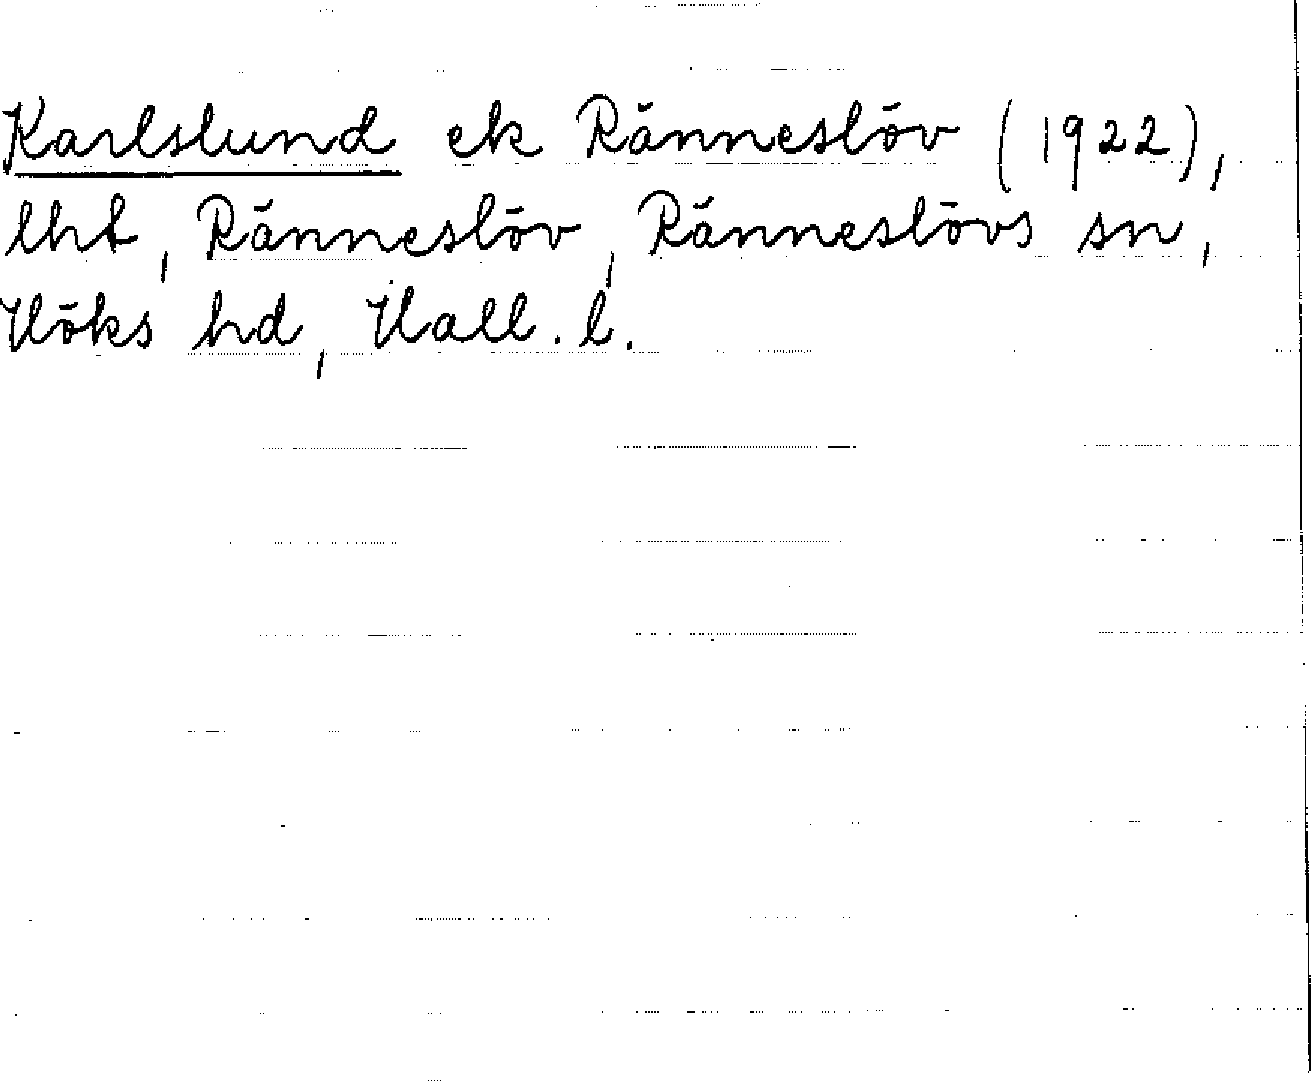 Karlslund ek Ränneslöv (1922),
lht, Ränneslöv, Ränneslövs sn,
Höks hd, Hall. l.